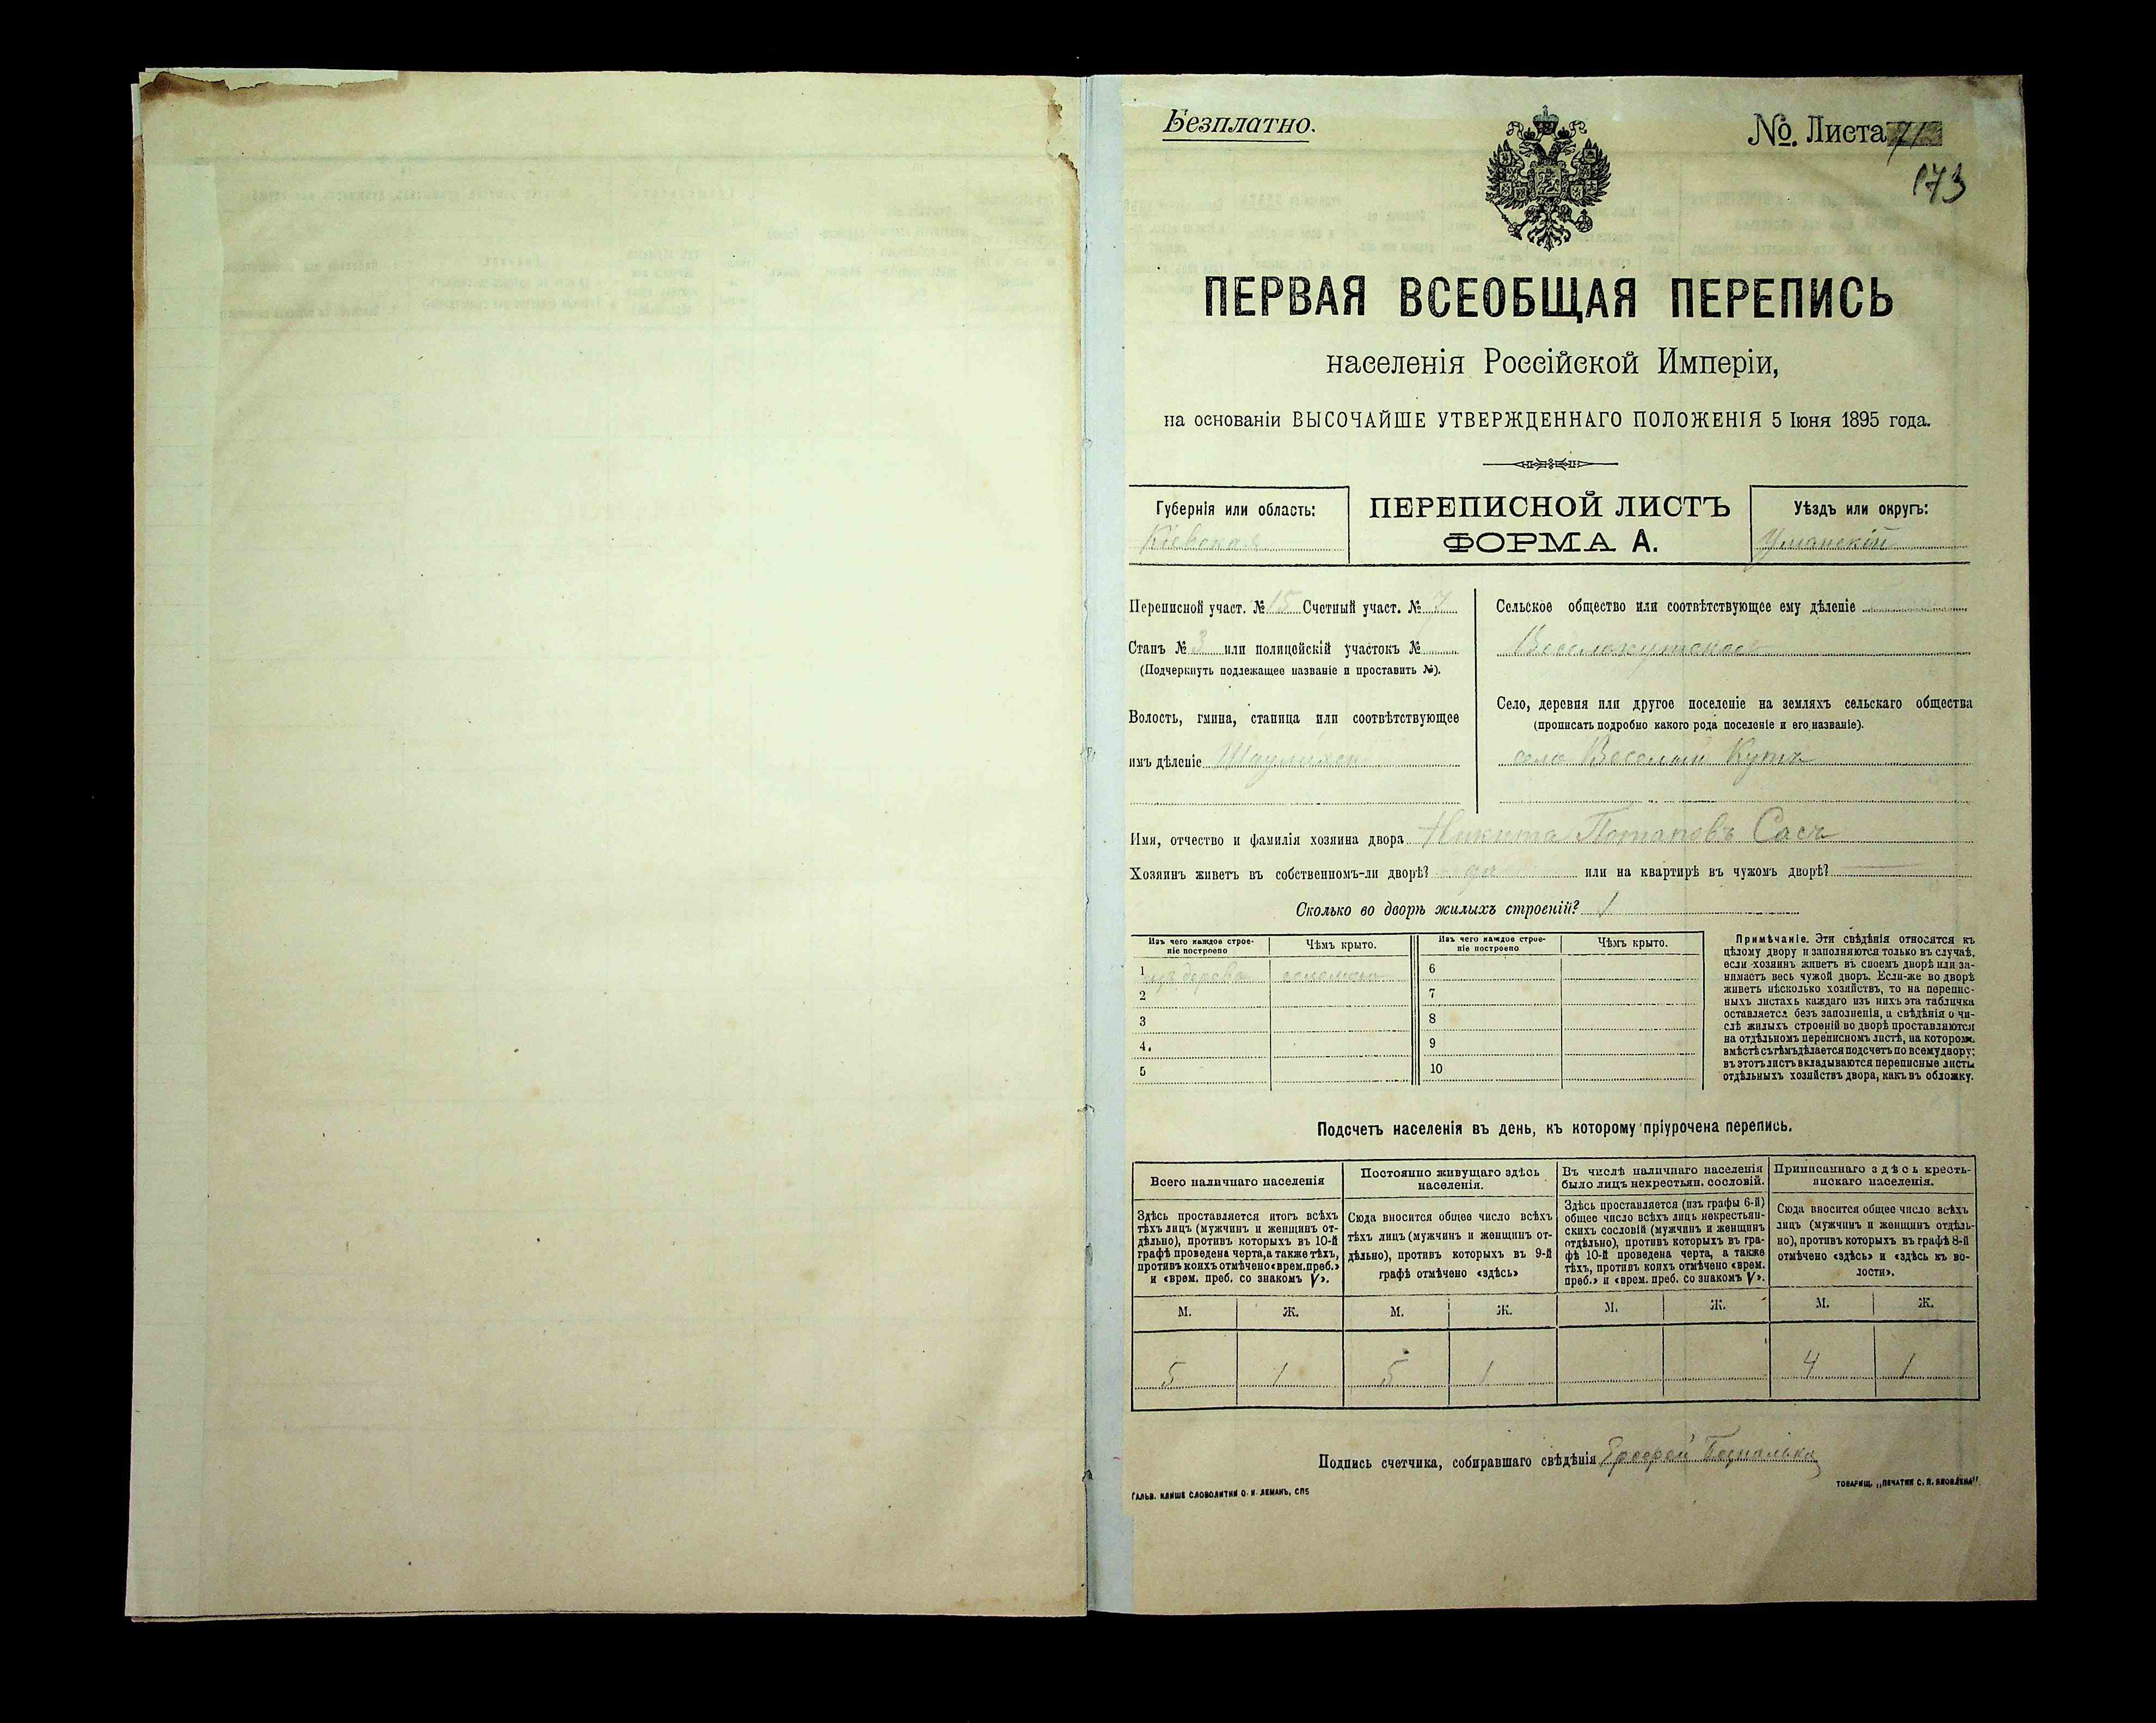 Безплатно.
№. Листа 71
173
ПЕРВАЯ ВСЕОБЩАЯ ПЕРЕПИСЬ
населенія Россійской Имперіи,
на основаніи ВЫСОЧАЙШЕ УТВЕРЖДЕННАГО ПОЛОЖЕНІЯ 5 Іюня 1895 года.
Губернія или область:
Кіевская
ПЕРЕПИСНОЙ ЛИСТЪ
ФОРМА А.
Уѣздъ или округъ:
Уманскій
Переписной участ. № 15 Счетный участ. № 7
Станъ № 3 или полицейскій участокъ №
(Подчеркнуть подлежащее названіе и проставить №).
Волость, гмина, станица или соотвѣтствующее
имъ дѣленіе
Сельское общество или соотвѣтствующее ему дѣленіе
Веселокутское
Село, деревня или другое поселеніе на земляхъ сельскаго общества
(прописать подробно какого рода поселеніе и его названіе).
село Веселый Кутъ
Имя, отчество и фамилія хозяина двора Никита Потаповъ Сасъ
Хозяинъ живетъ въ собственномъ-ли дворѣ? да или на квартирѣ въ чужомъ дворѣ?
Сколько во дворѣ жилыхъ строеній? 1
Изъ чего каждое строе-
ніе построено
Чѣмъ крыто.
Изъ чего каждое строе-
ніе построено
Чѣмъ крыто.
1 изъ дерева соломою
2
3
4.
5
6
7
8
9
10
Примѣчаніе. Эти свѣдѣнія относятся къ
цѣлому двору и заполняются только въ случаѣ,
если хозяинъ живетъ въ своемъ дворѣ или за-
нимаетъ весь чужой дворъ. Если-же во дворѣ
живетъ нѣсколько хозяйствъ, то на перепис-
ныхъ листахъ каждаго изъ нихъ эта табличка
оставляется безъ заполненія, а свѣдѣнія о чи-
слѣ жилыхъ строеній во дворѣ проставляются
на отдѣльномъ переписномъ листѣ, на которомъ
вмѣстѣ съ тѣмъ дѣлается подсчетъ по всему двору;
въ этотъ листъ вкладываются переписные листы
отдѣльныхъ хозяйствъ двора, какъ въ обложку.
Подсчетъ населенія въ день, къ которому пріурочена перепись.
Всего наличнаго населенія
Здѣсь проставляется итогъ всѣхъ
тѣхъ лицъ (мужчинъ и женщинъ от-
дѣльно), противъ которыхъ въ 10-й
графѣ проведена черта, а также тѣхъ,
противъ коихъ отмѣчено «врем. преб.»
и «врем. преб. со знакомъ V».
Постоянно живущаго здѣсь
населенія.
Сюда вносится общее число всѣхъ
тѣхъ лицъ (мужчинъ и женщинъ от-
дѣльно), противъ которыхъ въ 9-й
графѣ отмѣчено «здѣсь»
Въ числѣ наличнаго населенія
было лицъ некрестьян. сословій.
Здѣсь проставляется (изъ графы 6-й)
общее число всѣхъ лицъ некрестьян-
скихъ сословій (мужчинъ и женщинъ
отдѣльно), противъ которыхъ въ гра-
фѣ 10-й проведена черта, а также
тѣхъ, противъ коихъ отмѣчено «врем.
преб.» и «врем. преб. со знакомъ V».
Приписаннаго здѣсь кресть-
янскаго населенія.
Сюда вносится общее число всѣхъ
лицъ (мужчинъ и женщинъ отдѣль-
но), противъ которыхъ въ графѣ 8-й
отмѣчено «здѣсь» и «здѣсь къ во-
лости».
М. Ж. М. Ж. М. Ж. М. Ж.
5 1 5 1 4 1
Подпись счетчика, собиравшаго свѣдѣнія
ГАЛЬВ. КЛИШЕ СЛОВОЛИТНИ О. И. ЛЕМАНЪ, СПБ
ТОВАРИЩ. „ПЕЧАТНЯ С. П. ЯКОВЛЕВА".